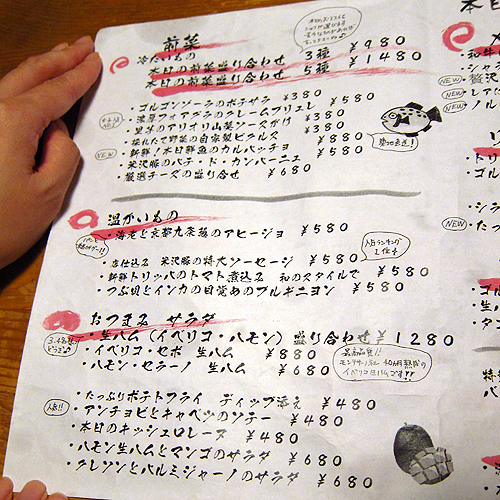 前菜
冷たいもの
本日の前菜盛り合わせ 3種 ¥980
本日の前菜盛り合わせ 5種 ¥1480
・ゴルゴンゾーラのポテサラ ¥380
・濃厚フォアグラのクレームブリュレ ¥580
・里芋のアリオリ山葵ソースがけ ¥380
・採れたて野菜の自家製ピクルス ¥380
NEW
・新鮮!本日鮮魚のカルパッチョ ¥580
・米沢豚のパテ・ド・カンパーニュ ¥580
・厳選チーズの盛り合せ ¥680
築地直送!
温かいもの
・海老と京都九条葱のアヒージョ ¥580
・自家仕込み 米沢豚の特大ソーセージ ¥580
・新鮮トリッパのトマト煮込み 和のスタイルで ¥580
・つぶ貝とインカの目覚めのブルギニヨン ¥580
人気ランキング
1位!!
おつまみ サラダ
・生ハム(イベリコ・ハモン)盛り合わせ ¥1280
・イベリコ・セボ 生ハム ¥880
・ハモン・セラーノ 生ハム ¥680
最高品質!!
イベリコ生ハムです!!
・たっぷりポテトフライ ディップ添え ¥380
人気!!
・アンチョビとキャベツのソテー ¥480
・本日のキッシュロレーヌ ¥480
・ハモン生ハムとマンゴのサラダ ¥680
・クレソンとパルミジャーノのサラダ ¥680
本日
・和牛
・シャラ
NEW
・レアに
NEW
・ノル
・トリ
・ゴル
・シラ
NEW
・たっ
・ゴル
・イ
・タン